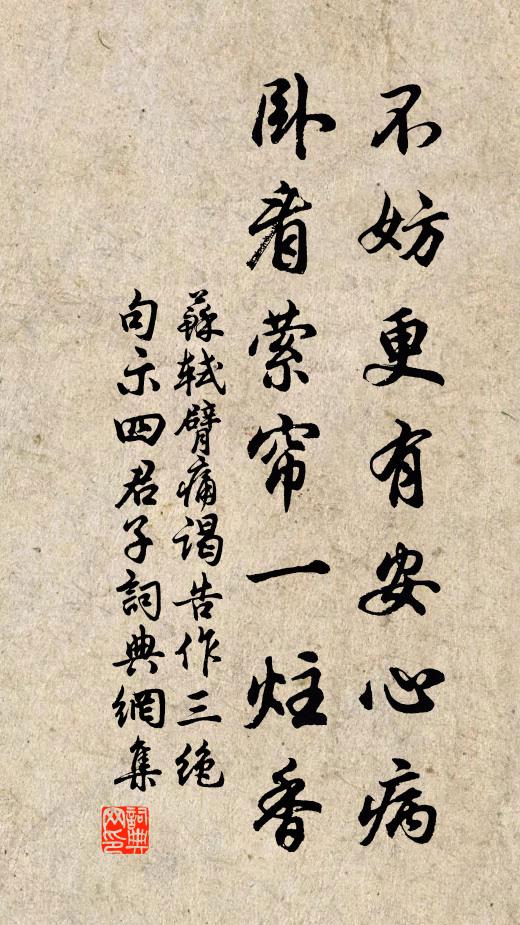 不妨更有安心病
卧看萦帘一炷香
蘇轼臂痛谒告作三绝
句示四君子詞典網集
詞典网印